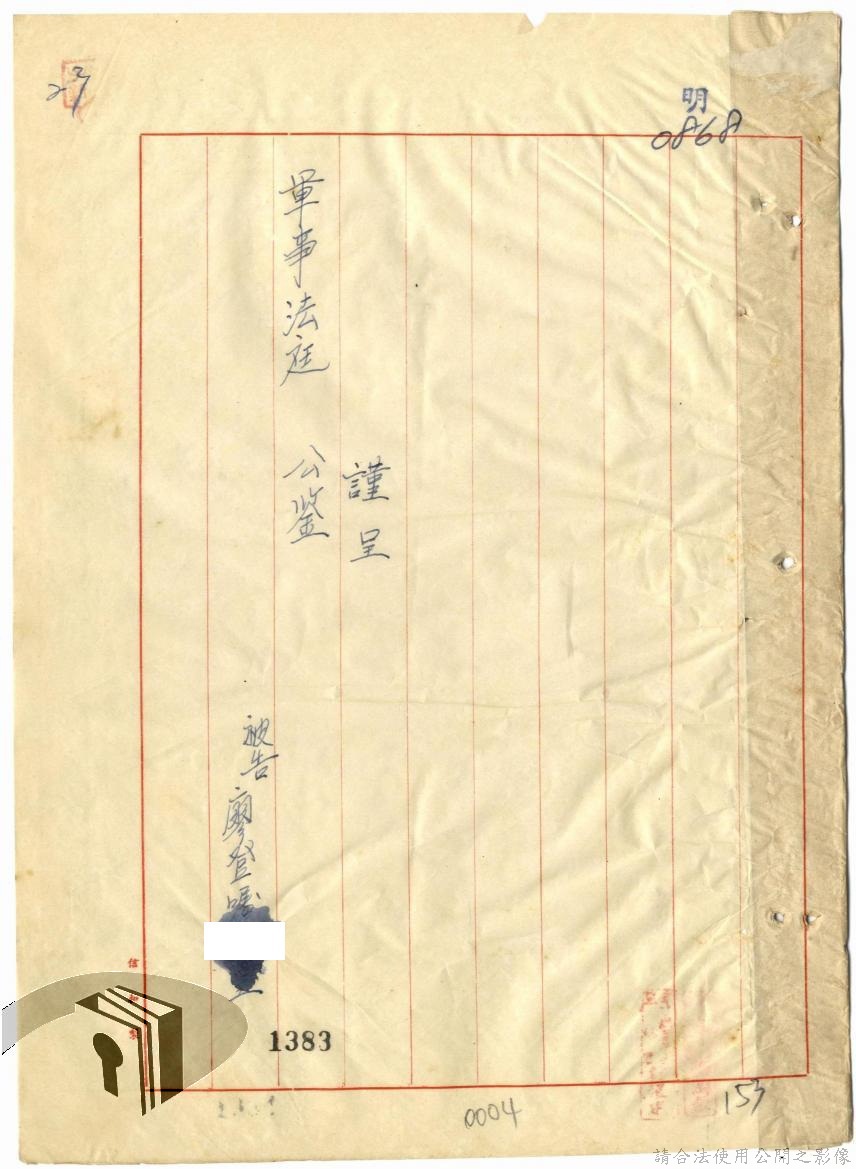 明
0868
謹呈
軍事法庭 公鑒
被告 廖登
1383
0004
153
請合法使用公開之影像